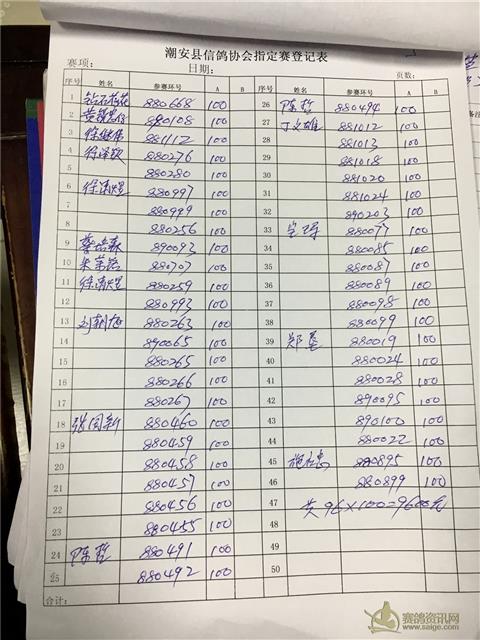 潮安县信鸽协会指定赛登记表
赛项： 日期： 页数：
序号 姓名 参赛环号 A B 序号 姓名 参赛环号 A B
1 880668 100 26 陈哲 880494 100
2 880108 100 27 丁文雄 881012 100
3 徐继伟 881112 100 28 881013 100
4 880276 100 29 881018 100
5 880280 100 30 881020 100
6 880997 100 31 881024 100
7 880999 100 32 890203 100
8 880256 100 33 880077 100
9 890093 100 34 880085 100
10 880707 100 35 880087 100
11 880259 100 36 880089 100
12 880993 100 37 880098 100
13 880263 100 38 880099 100
14 890065 100 39 880019 100
15 880265 100 40 880024 100
16 880266 100 41 880028 100
17 880267 100 42 890095 100
18 张同新 880460 100 43 890100 100
19 880459 100 44 880022 100
20 880458 100 45 880895 100
21 880457 100 46 880899 100
22 880456 100 47 共96×100=9600元
23 880455 100 48
24 陈哲 880491 100 49
25 880492 100 50
合计：
赛鸽资讯网
www.saige.com